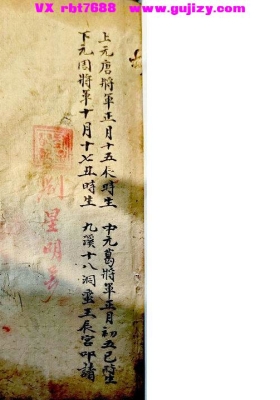 VX rbt7688 www.gujizy.com
上元唐將軍正月十五辰時生 中元葛將軍正月初五巳時生
下元周將軍十月十七丑時生 九溪十八洞蛮王辰宮叩請
劉星明号